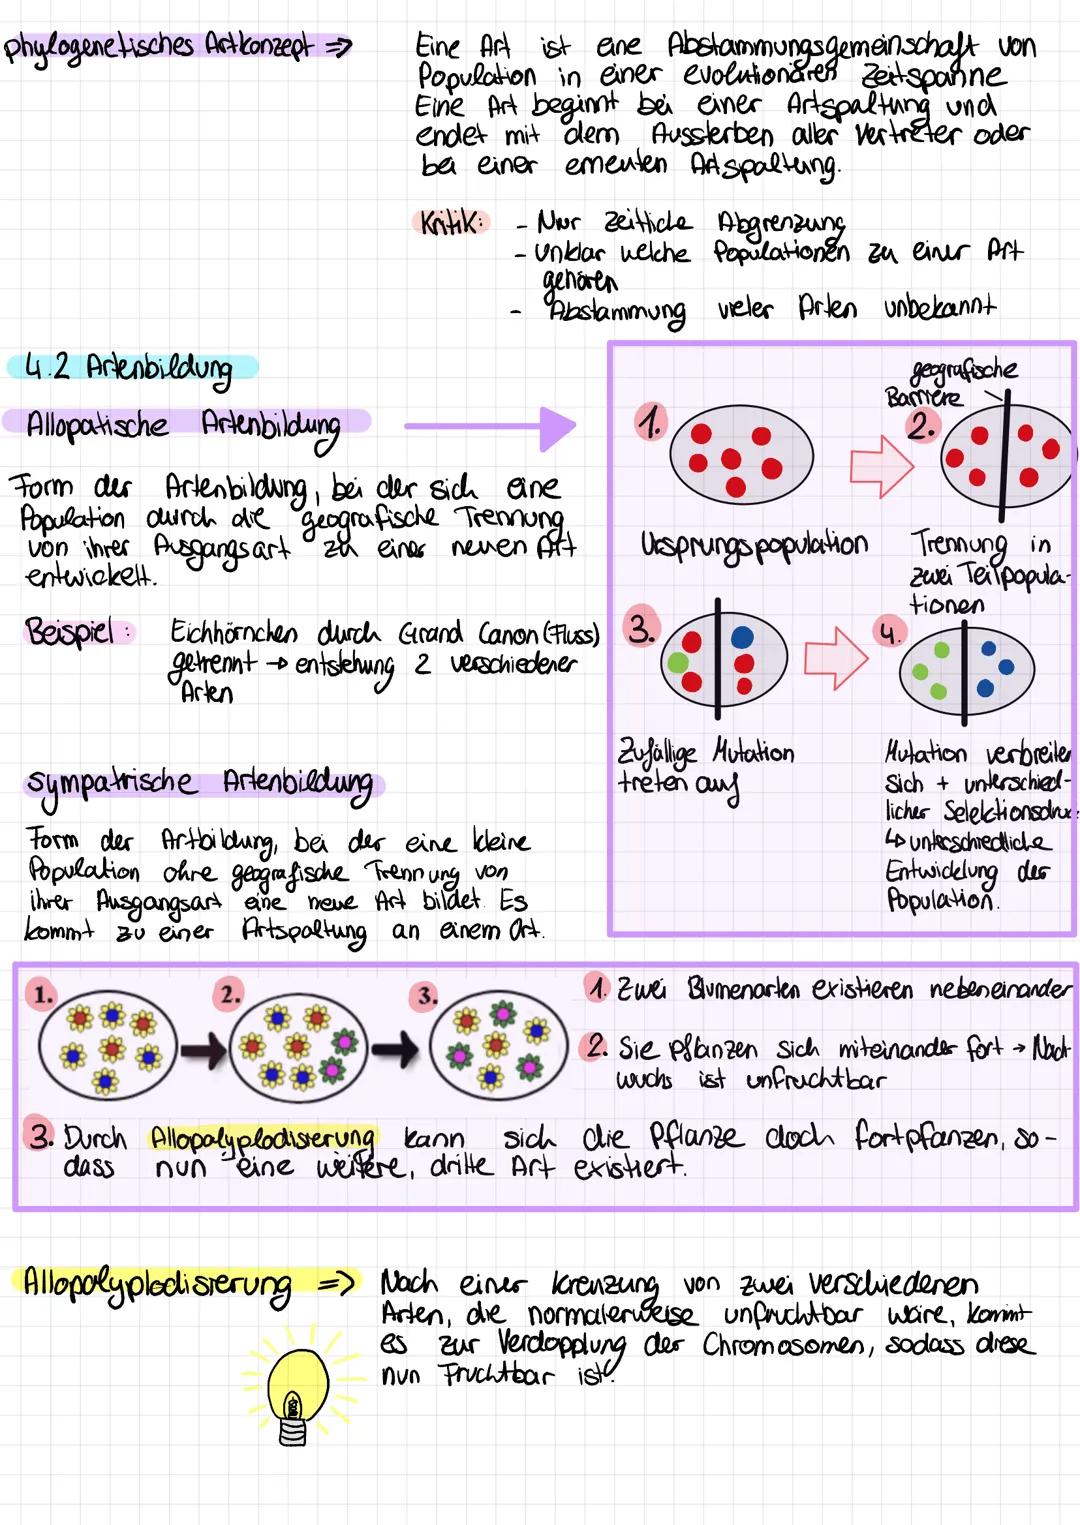 phylogenetisches Artkonzept =>
Eine Art ist eine Abstammungsgemeinschaft von
Population in einer evolutionären Zeitspanne
Eine Art beginnt bei einer Artspaltung und
endet mit dem Aussterben aller Vertreter oder
bei einer erneuten Artspaltung.
Kritik: - Nur zeitliche Abgrenzung
- Unklar welche Populationen zu einer Art
gehören
- Abstammung vieler Arten unbekannt
4.2 Artenbildung
Allopatische Artenbildung
Form der Artenbildung, bei der sich eine
Population durch die geografische Trennung
von ihrer Ausgangsart zu einer neuen Art
entwickelt.
Beispiel: Eichhörnchen durch Grand Canon (Fluss)
getrennt → entstehung 2 verschiedener
Arten
geografische
Barriere
1.
2.
Ursprungspopulation
Trennung in
zwei Teilpopula-
tionen
3.
4.
Zufällige Mutation
treten auf
Mutation verbreiten
sich + unterschied-
licher Selektionsdruck
↳ unterschiedliche
Entwicklung der
Population.
sympatrische Artenbildung
Form der Artbildung, bei der eine kleine
Population ohne geografische Trennung von
ihrer Ausgangsart eine neue Art bildet. Es
kommt zu einer Artspaltung an einem Ort.
1.
2.
3.
1. Zwei Blumenarten existieren nebeneinander
2. Sie pflanzen sich miteinander fort → Nach
wuchs ist unfruchtbar
3. Durch Allopolyplodisierung kann sich die Pflanze doch fortpfanzen, so-
dass nun eine weitere, dritte Art existiert.
Allopolyplodisierung =>
Nach einer Kreuzung von zwei verschiedenen
Arten, die normalerweise unfruchtbar wäre, kommt
es zur Verdopplung der Chromosomen, sodass diese
nun Fruchtbar ist.